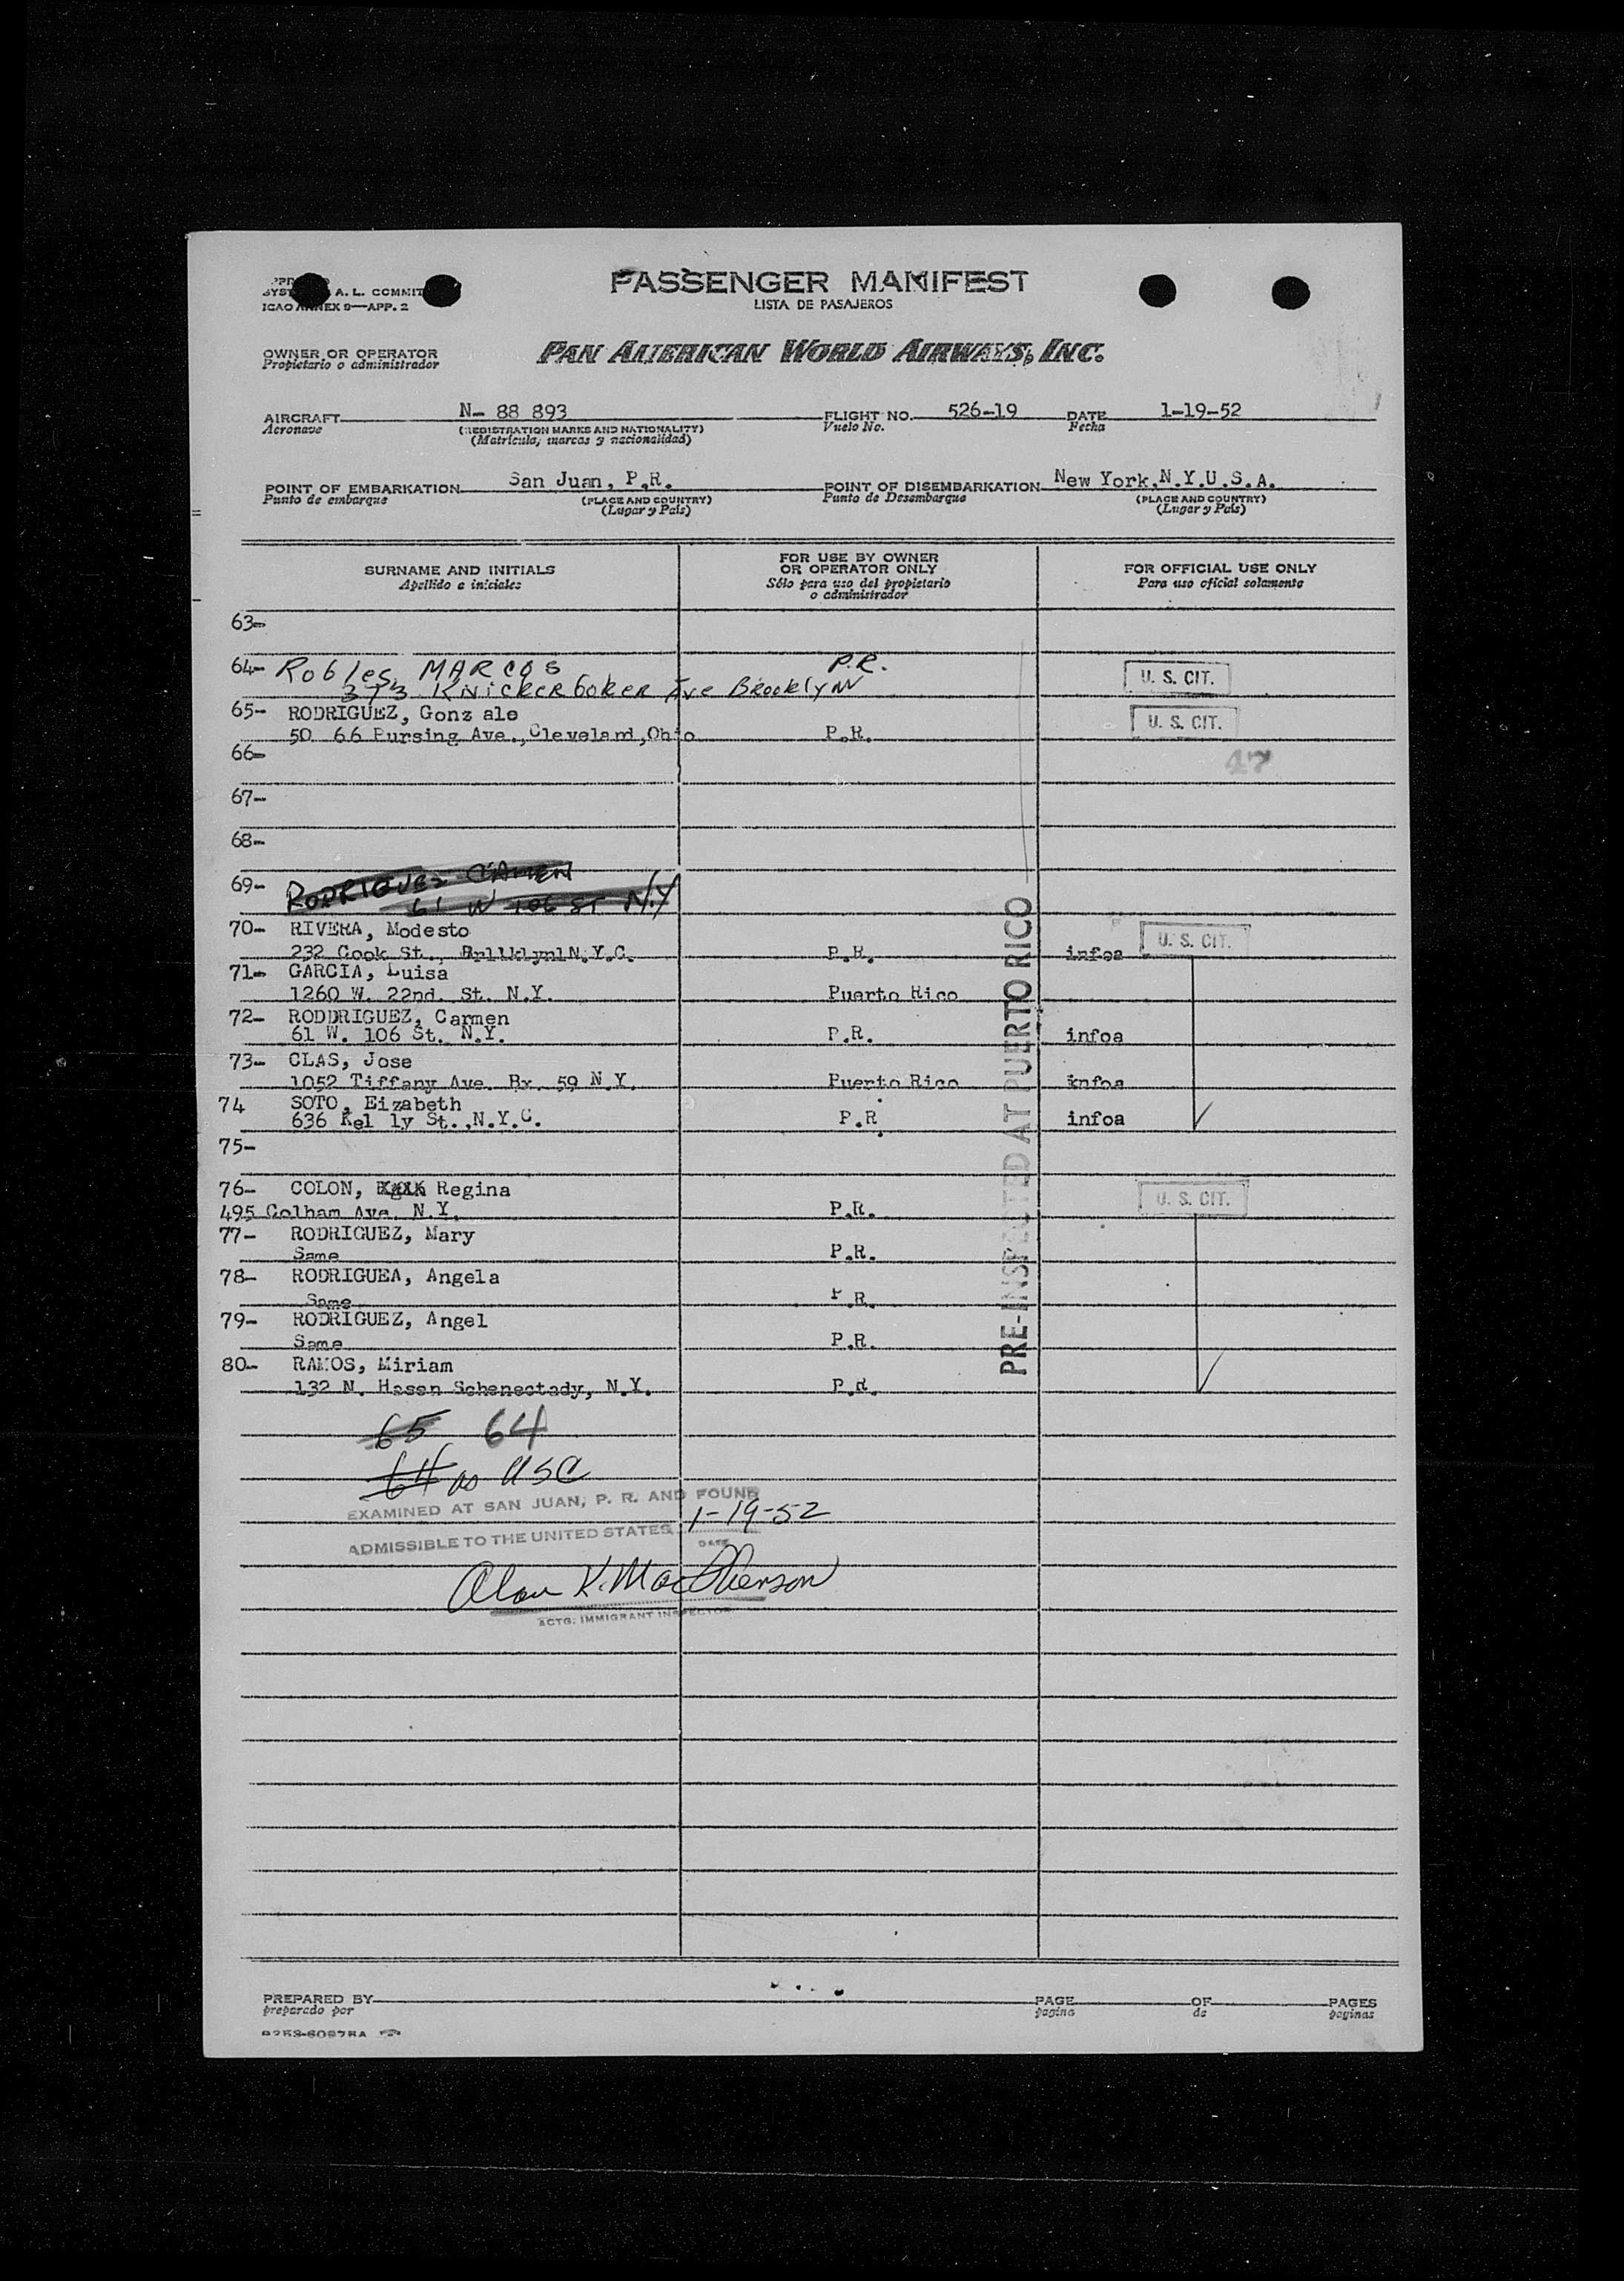 PASSENGER MANIFEST
LISTA DE PASAJEROS
A. L. COMMIT
ICAO ANNEX 9—APP. 2
OWNER OR OPERATOR
Propietario o administrador
PAN AMERICAN WORLD AIRWAYS, INC.
AIRCRAFT N- 88 893 FLIGHT NO. 526-19 DATE 1-19-52
Aeronave (REGISTRATION MARKS AND NATIONALITY) Vuelo No. Fecha
(Matrícula, marcas y nacionalidad)
POINT OF EMBARKATION San Juan, P.R. POINT OF DISEMBARKATION New York,N.Y.U.S.A.
Punto de embarque (PLACE AND COUNTRY) Punto de Desembarque (PLACE AND COUNTRY)
(Lugar y País) (Lugar y País)
SURNAME AND INITIALS
Apellido e iniciales
FOR USE BY OWNER
OR OPERATOR ONLY
Sólo para uso del propietario
o administrador
FOR OFFICIAL USE ONLY
Para uso oficial solamente
63-
64- Robles, MARCOS P.R. U. S. CIT.
373 KNickerboker Ave BrooklyN
65- RODRIGUEZ, Gonz alo U. S. CIT.
50 66 Pursing Ave.,Cleveland,Ohio P.R.
66- 47
67-
68-
69- RODRIGUEZ CAMEN
61 W 106 ST N.Y
70- RIVERA, Modesto U. S. CIT.
232 Cook St., N.Y.C. P.R. infoa
71- GARCIA, Luisa
1260 W. 22nd. St. N.Y. Puerto Rico
72- RODDRIGUEZ, Carmen
61 W. 106 St. N.Y. P.R. infoa
73- CLAS, Jose
1052 Tiffany Ave. Bx. 59 N.Y. Puerto Rico infoa
74 SOTO, Eizabeth
636 Kel ly St.,N.Y.C. P.R. infoa
75-
76- COLON, Regina U. S. CIT.
495 Colham Ave. N.Y. P.R.
77- RODRIGUEZ, Mary
Same P.R.
78- RODRIGUEA, Angela
Same P.R.
79- RODRIGUEZ, Angel
Same P.R.
80- RAMOS, Miriam
132 N. Hasen Schenectady, N.Y. P.R.
PRE-INSPECTED AT PUERTO RICO
65 64
64 as USC
EXAMINED AT SAN JUAN, P. R. AND FOUND
ADMISSIBLE TO THE UNITED STATES 1-19-52
DATE
Alan K. MacPherson
ACTG. IMMIGRANT INSPECTOR
PREPARED BY PAGE OF PAGES
preparado por pagina de paginas